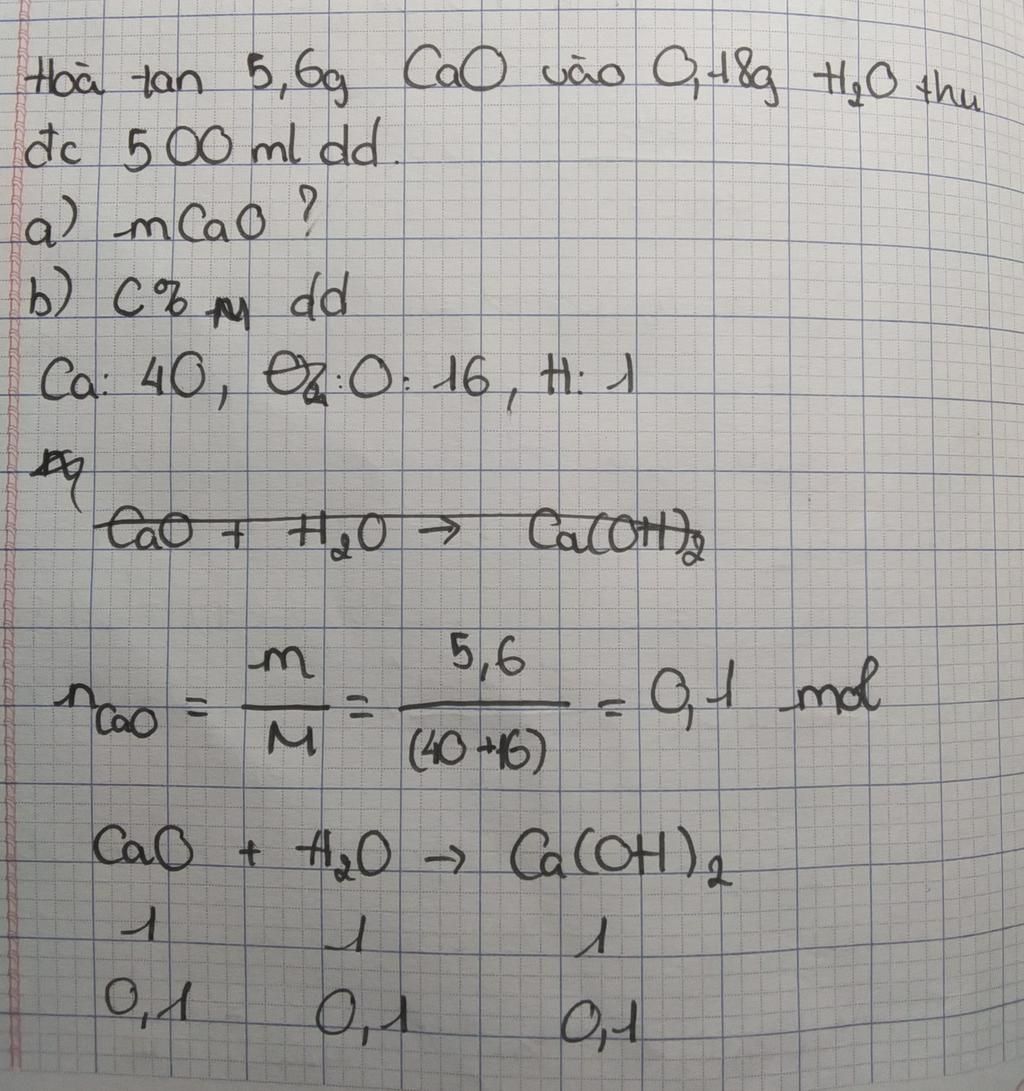 Hoà tan 5,6g CaO vào 0,18g H₂O thu
đc 500 ml dd.
a) mCaO ?
b) C% M dd
Ca: 40, O: 16, H: 1
CaO + H₂O → Ca(OH)₂
nCaO = m/M = 5,6/(40+16) = 0,1 mol
CaO + H₂O → Ca(OH)₂
1 1 1
0,1 0,1 0,1